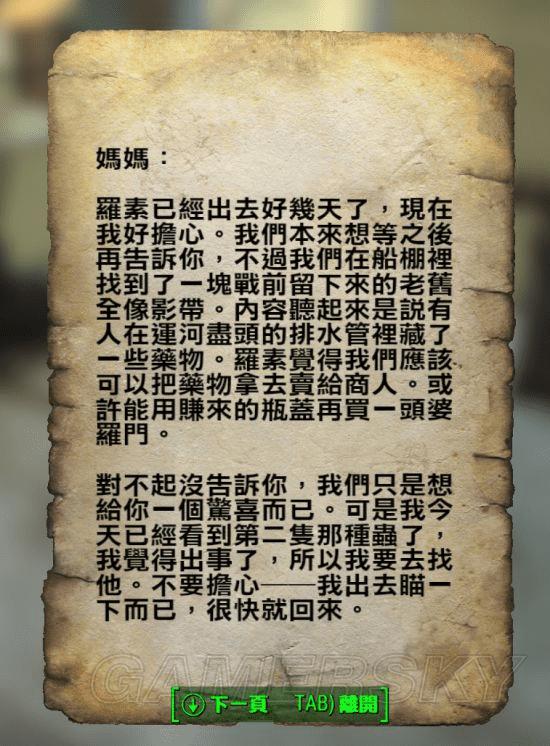 媽媽：
羅素已經出去好幾天了，現在
我好擔心。我們本來想等之後
再告訴你，不過我們在船棚裡
找到了一塊戰前留下來的老舊
全像影帶。內容聽起來是說有
人在運河盡頭的排水管裡藏了
一些藥物。羅素覺得我們應該
可以把藥物拿去賣給商人。或
許能用賺來的瓶蓋再買一頭婆
羅門。
對不起沒告訴你，我們只是想
給你一個驚喜而已。可是我今
天已經看到第二隻那種蟲了，
我覺得出事了，所以我要去找
他。不要擔心——我出去瞄一
下而已，很快就回來。
GAMERSKY
下一頁 TAB) 離開